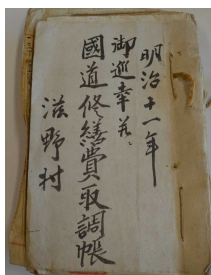 明治十一年
御巡幸ニ
國道修繕費取調帳
滋野村